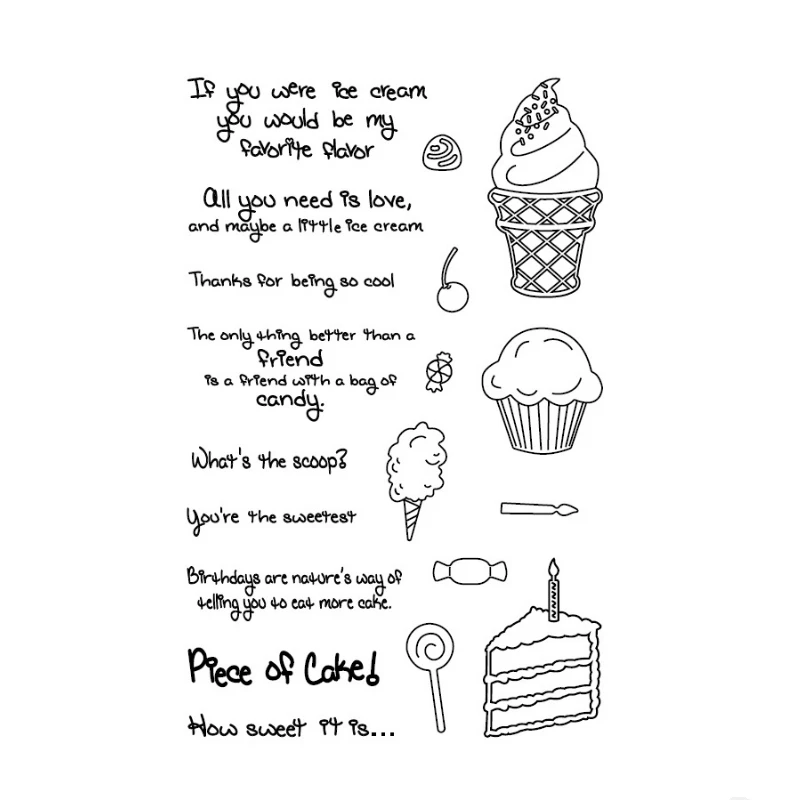 If you were ice cream
you would be my
favorite flavor
All you need is love,
and maybe a little ice cream
Thanks for being so cool
The only thing better than a
friend
is a friend with a bag of
candy.
What's the scoop?
You're the sweetest
Birthdays are nature's way of
telling you to eat more cake.
Piece of Cake!
How sweet it is...